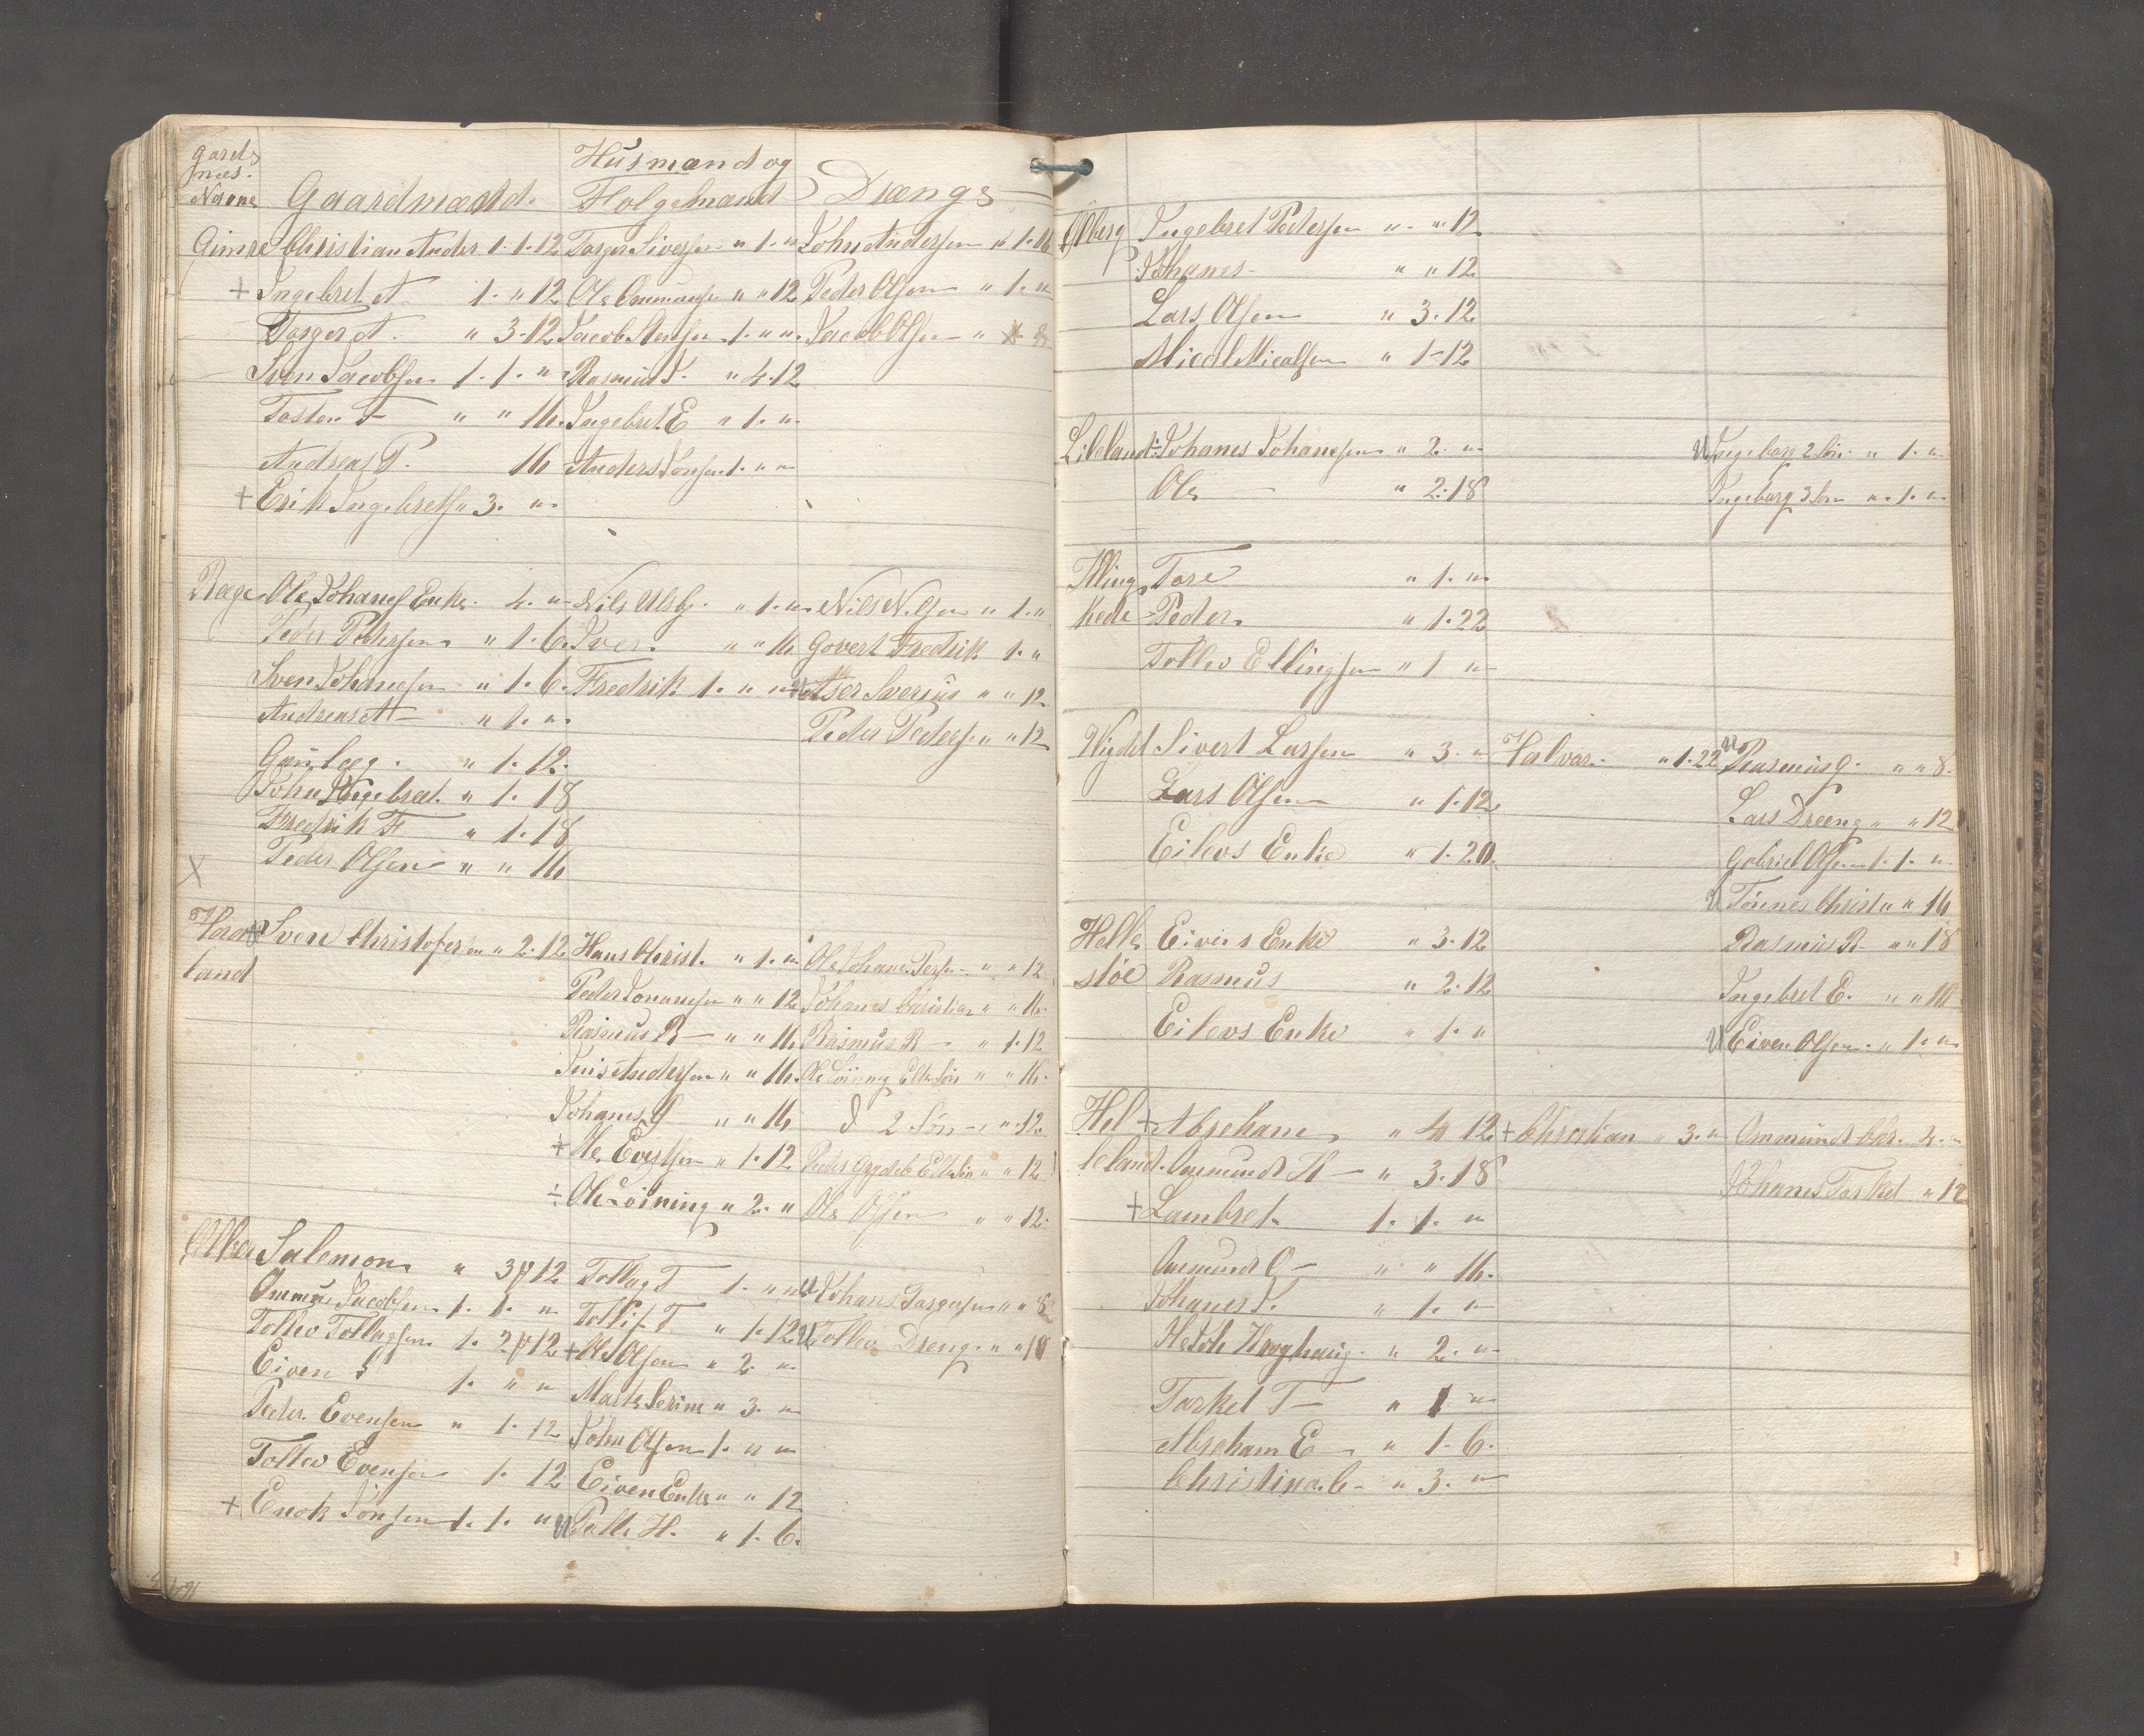 Gards
Navne Gaardmænd. Husmænd og
Folgemænd Drænge
Gimre Christian Ander 1. 1. 12 Torger Siversen " 1. " John Andersen " 1. 16
+ Ingebret A 1. " 12 Ole Ommunsen " " 12 Peder Olsen " 1. "
Torger A. " 3. 12 Jacob Stensen 1. " " Jacob Olsen " 8
Sven Jacobsen 1. 1. " Rasmus T. " 4. 12
Tosten T " " 16. Ingebret E " 1. "
Andreas P. 16 Anders Jonsen 1. " "
+ Erik Ingebrets " 3. "
Ræge Ole Johanes Enke. 4. " Nils Ulsb. " 1. " Nils Nilsen " 1. "
Peder Pedersen " 1. 6. Iver. " " 16 Govert Fredrik 1. "
Sven Johanesen " 1. 6. Fredrik 1. " " Aser Sverius " " 12
Andreas A " 1. " Peder Pedersen " 12
Gunleeg. " 1. 12.
John Ingebret. " 1. 18
Fredrik F " 1. 18
X Peder Olsen " " 16
Hara + Sven Christofersen " 2. 12 Hans Christ. " 1. " Ole Johanes Persen " " 12
land Peder Jonassen " " 12 Johanes Christian " " 16.
Rasmus R " " 16 Rasmus R " 1. 12
Jens Andersen " " 16. Ole Loining Elt Søn " " 16.
Johanes G " " 16 d 2 Søn " " 12.
+ Ole Eveltsen " 1. 12 Peder Elt Søn " " 12
÷ Ole Loining " 2. " Ole Olsen " " 12.
Salemon " 3. 12 Tollag T 1. " " Johans Torgersen " " 8
Ommun Jacobsen 1. 1. " Tollif T " 1. 12 Tollev Dreng. " " 18
Tollev Tollagsen 1. 2. 12 + Ole Olsen " 2. "
Eiven S 1. " " Marte Serine " 3. "
Peder Evensen " 1. 12 John Olsen 1. " "
Tollev Evensen 1. 12 Eiven Enke " " 12
+ Enok Jonsen 1. 1. " Palle H. " 1. 6.
Ølberg Ingebret Pedersen " " 12
Johanes " " 12
Lars Olsen " 3. 12
Mical Micalsen " 1 12
Lileland ÷ Johanes Johanesen " 2. " Ingeborg 2 Søn. " 1. "
Ole " 2. 18 Ingeborg 3 Søn " 1. "
Tore " 1. "
Peder " 1. 22
Tollev Ellingsen " 1 "
Vigdel Sivert Larsen " 3. " Halvar. " 1. 22 Rasmus G. " " 8.
Lars Olsen " 1. 12. Lars Dreeng " " 12
Eilevs Enke " 1. 20. Gabriel Olsen 1. 1. "
Tönnes Christ " " 16
Helle Eivins Enke " 3. 12 Rasmus R. " " 18
støe Rasmus " 2. 12 Ingebret E. " " 16
Eilevs Enke " 1. " Eiven Olsen. " 1. "
Hel + Abreham " 4 12. + Christian " 3. " Ommund Chr. 4. "
leland. Ommund H " 3. 18 Johanes Torkel " 12
+ Lambret. 1. 1. "
Ommund O " " 16.
Johanes T. " 1. "
" 2. "
Torkel T " 1 "
Abreham E " 1. 6.
Christina C " 3. "